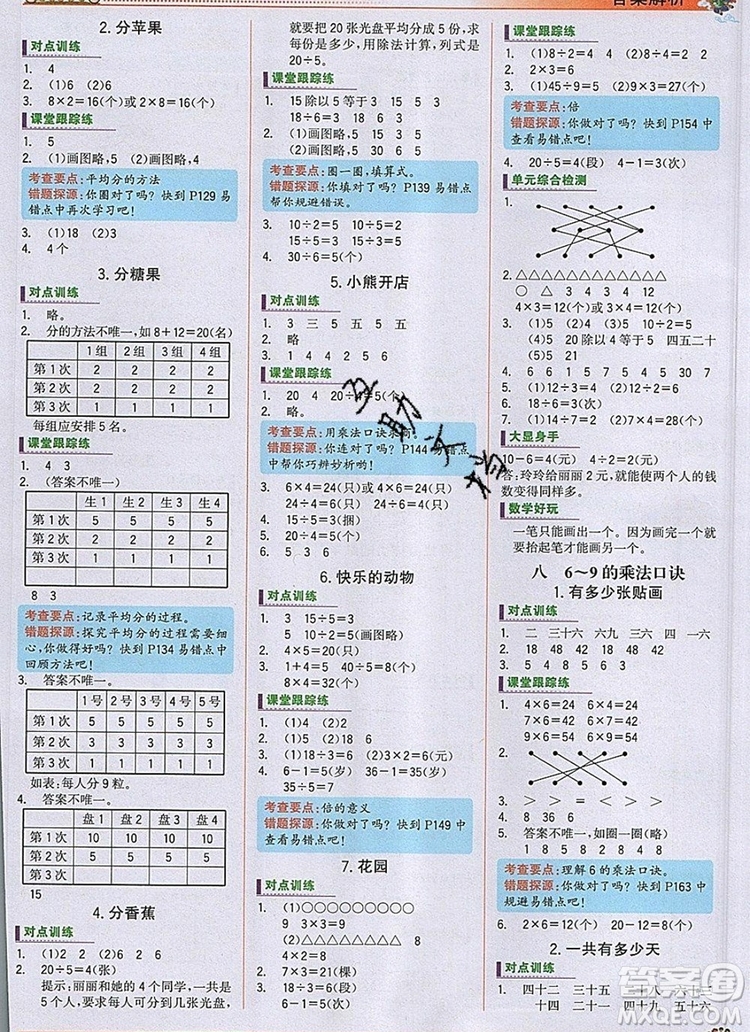 答案解析
2. 分苹果
对点训练
1. 4
2. (1)6 (2)6
3. 8×2=16(个)或2×8=16(个)
课堂跟踪练
1. 5
2. (1)画图略 (2)画图略,4
考查要点:平均分的方法
错题探源:你圈对了吗？快到P129易
错点中再次学习吧！
3. (1)18 (2)3
4. 4个
3. 分糖果
对点训练
1. 略。
2. 分的方法不唯一,如8+12=20(名)
1组 2组 3组 4组
第1次 2 2 2 2
第2次 2 2 2 2
第3次 1 1 1 1
每组应安排5名。
课堂跟踪练
1. 4 3
2. (答案不唯一)
生1 生2 生3 生4
第1次 5 5 5 5
第2次 5 5 5 5
第3次 1 1 1 1
8 3
考查要点:记录平均分的过程。
错题探源:探究平均分的过程需要细
心,你做得好吗？快到P134易错点中
回顾方法吧！
3. 答案不唯一。
1号 2号 3号 4号 5号
第1次 5 5 5 5 5
第2次 3 3 3 3 3
第3次 1 1 1 1 1
如表:每人分9粒。
4. 答案不唯一。
盘1 盘2 盘3 盘4
第1次 10 10 10 10
第2次 5 5 5 5
第3次
15
4. 分香蕉
对点训练
1. (1)2 2 (2)6 2 6
2. 20÷5=4(张)
提示:丽丽和她的4个同学,一共是
5个人,要求每人分几张光盘,
就要把20张光盘平均分成5份,求
每份是多少,用除法计算,列式是
20÷5。
课堂跟踪练
1. 15除以5等于3 15 5 3
18÷6=3 18 6 3
2. (1)画图略 (2)画图略
考查要点:圈一圈,填算式。
错题探源:你填对了吗？快到P139易错点
帮你规避错误。
3. 10÷2=5 10÷5=2
15÷5=3 15÷3=5
4. 30÷6=5(个)
5. 小熊开店
对点训练
1. 3 三 5 五 5 五
2. 略
3. 1 4 4 2 2 5
课堂跟踪练
1. 20 4 20÷4=5(个)
2. 略。
考查要点:用乘法口诀求商。
错题探源:你连对了吗？快到P144易错点
中帮你巧辨妙析吧！
3. 6×4=24(只)或4×6=24(只)
24÷4=6(只) 24÷6=4(只)
4. 15÷5=3(捆)
5. 20÷5=4(个)
6. 5 3 6
6. 快乐的动物
对点训练
1. 3 15÷5=3
5 10÷2=5(画图略)
2. 4×5=20(个)
3. 1+4=5 40÷5=8
8×5=40(个)
课堂跟踪练
1. (1)4 (2)2
2. (1)5 (2)15 18 6
3. (1)18÷3=6 (2)3×2=6(元)
4. 6-1=5(岁) 36-1=35(岁)
35÷5=7
考查要点:倍的意义
错题探源:你做对了吗？快到P149中
查看易错点！
7. 花园
对点训练
1. (1)○○○○○○○○○
9 3 3×3=9
(2)△△△△△△△△
8 4 4×2=8
2. 21÷7=3(棵)
3. 18÷6=3
课堂跟踪练
1. (1)4÷2=2 (2)8÷4=2
2. 2×3=6
3. (1)45÷9=5 (2)9÷3=3
考查要点:倍
错题探源:你做对了吗？快到P154中
查看易错点！
4. 20÷5=4(段) 4-1=3(次)
单元综合检测
1.
2. △△△△△△△△△△△△
4×3=12(个)或3×4=12(个)
3. (1)5 (2)5 20除以4等于5 四五二十
(5)5
4. 6 5 7 2 7 3 9 5
5. 12÷2=6
6. 10÷5=2(个)
7. (1)14÷7=2 (2)3×4=12
大显身手
10-6=4(元) 4÷2=2(元)
答:玲玲给丽丽2元,就能使两个人的钱
数变得同样多。
数学好玩
一笔只能画出一个。因为画完一个就
要抬起笔才能画另一个。
八 6~9的乘法口诀
1. 有多少张贴画
对点训练
1. 二 三十六 六九 三六 四 一六
2. 5 4 8 9 6 7
课堂跟踪练
1. 4×6=24 6×4=24
7×6=42 6×7=42
9×6=54 6×9=54
2.
3. > > = < > <
4. 8 36 6
5. 答案不唯一,如圈一圈(略)
考查要点:理解6的乘法口诀。
错题探源:你做对了吗？快到P163中
规避易错点！
6. 2×6=12(个) 20-12=8(个)
2. 一共有多少天
对点训练
1. 四十二 三十五 二十八 六十三
十四 二十一 四十九 五十六
互助文档
答案圈